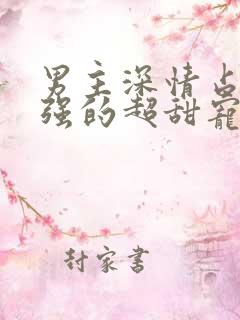 男主深情占
强的超甜寵
封家書